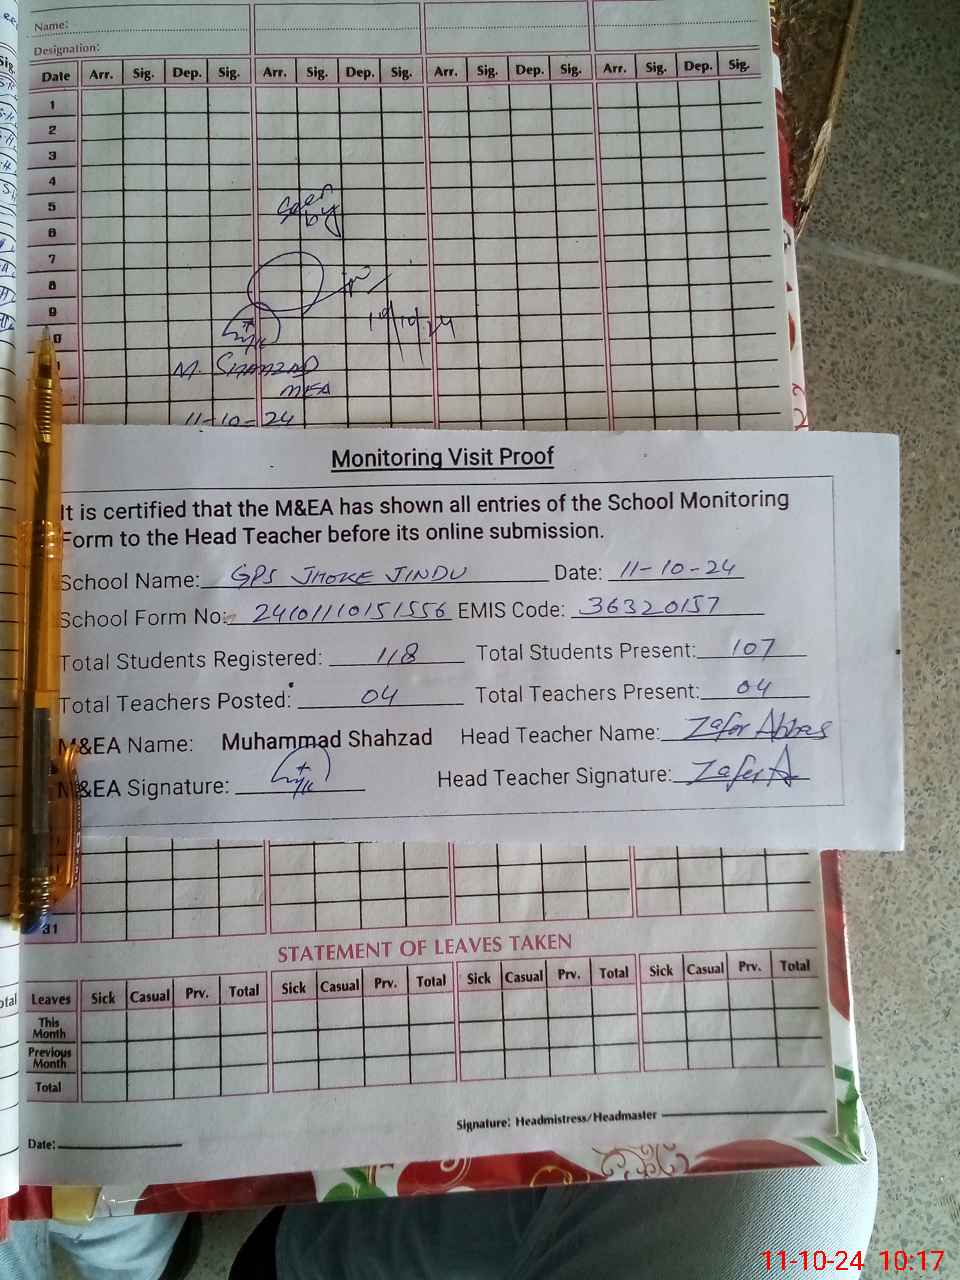 Name:
Designation:
Date Arr. Sig. Dep. Sig. Arr. Sig. Dep. Sig. Arr. Sig. Dep. Sig. Arr. Sig. Dep. Sig.
1
2
3
4
5
6
7
8
9
Seen
by
10/10/24
M. SHAHZAD
MEA
11-10-24
Monitoring Visit Proof
It is certified that the M&EA has shown all entries of the School Monitoring
Form to the Head Teacher before its online submission.
School Name: GPS JHOKE JINDU Date: 11-10-24
School Form No: 24101110151556 EMIS Code: 36320157
Total Students Registered: 118 Total Students Present: 107
Total Teachers Posted: 04 Total Teachers Present: 04
M&EA Name: Muhammad Shahzad Head Teacher Name: Zafar Abbas
M&EA Signature: Head Teacher Signature: Zafar A
31
STATEMENT OF LEAVES TAKEN
Leaves Sick Casual Prv. Total Sick Casual Prv. Total Sick Casual Prv. Total Sick Casual Prv. Total
This
Month
Previous
Month
Total
Signature: Headmistress/Headmaster
Date:
11-10-24 10:17